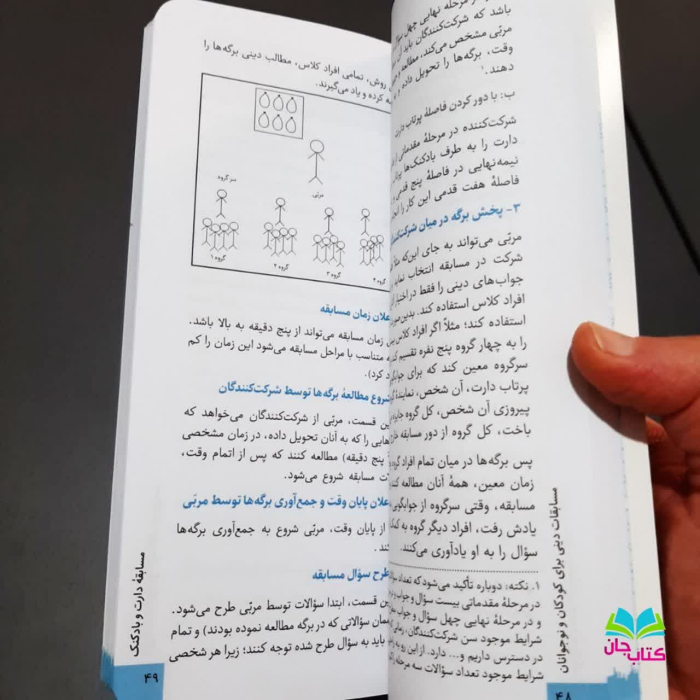 در مرحله نهایی چهل سؤال
باشد که شرکت‌کنندگان باید آن
مربّی مشخص می‌کند، مطالعه و
وقت، برگه‌ها را تحویل داده و
دهند.۱
ب: با دور کردن فاصلهٔ پرتاب دارت
شرکت‌کننده در مرحلهٔ مقدماتی از
دارت را به طرف بادکنک‌ها
نیمه‌نهایی در فاصلهٔ پنج قدمی و
فاصلهٔ هفت قدمی این کار را
۳- پخش برگه در میان شرکت‌کنندگان
مربّی می‌تواند به جای این‌که
شرکت در مسابقه انتخاب نماید
جواب‌های دینی را فقط در اختیار
افراد کلاس استفاده کند. بدین‌صورت
استفاده کند؛ مثلاً اگر افراد کلاس
را به چهار گروه پنج نفره تقسیم
سرگروه معین کند که برای
پرتاب دارت، آن شخص، نمایندهٔ
پیروزی آن شخص، کل گروه
باخت، کل گروه از دور مسابقه
پس برگه‌ها در میان تمام افراد گروه
زمان معین، همهٔ آنان مطالعه
مسابقه، وقتی سرگروه از جوابگویی
یادش رفت، افراد دیگر گروه به
سؤال را به او یادآوری می‌کنند.
۱. نکته: دوباره تأکید می‌شود که تعداد
در مرحلهٔ مقدماتی بیست سؤال و جواب
و در مرحلهٔ نهایی چهل سؤال و جواب
شرایط موجود سن شرکت‌کنندگان،
در دسترس داریم و... دارد. از این رو
شرایط موجود تعداد سؤالات سه مرحله
مسابقات دینی برای کودکان و نوجوانان
۴۸
روش، تمامی افراد کلاس، مطالب دینی برگه‌ها را
کرده و یاد می‌گیرند.
مربّی
سر گروه
گروه ۱
گروه ۲
گروه ۳
گروه ۴
علان زمان مسابقه
زمان مسابقه می‌تواند از پنج دقیقه به بالا باشد.
متناسب با مراحل مسابقه می‌شود این زمان را کم
کرد).
شروع مطالعهٔ برگه‌ها توسط شرکت‌کنندگان
این قسمت، مربّی از شرکت‌کنندگان می‌خواهد که
هایی را که به آنان تحویل داده، در زمان مشخصی
پنج دقیقه) مطالعه کنند که پس از اتمام وقت،
مسابقه شروع می‌شود.
علان پایان وقت و جمع‌آوری برگه‌ها توسط مربّی
از پایان وقت، مربّی شروع به جمع‌آوری برگه‌ها
کند.
طرح سؤال مسابقه
این قسمت، ابتدا سؤالات توسط مربّی طرح می‌شود.
همان سؤالاتی که در برگه مطالعه نموده بودند) و تمام
باید به سؤال طرح شده توجه کنند؛ زیرا هر شخصی
مسابقه دارت و بادکنک
۴۹
کتاب جان